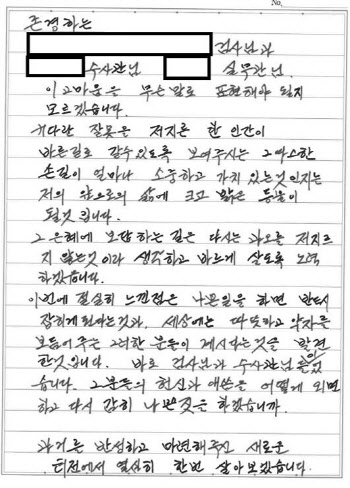 No.
존경하는
검사님과
수사관님 실무관님.
이 고마움을 무슨말로 표현해야 될지
모르겠습니다.
커다란 잘못을 저지른 한 인간이
바른길로 갈수있도록 보여주시는 그따스한
손길이 얼마나 소중하고 가치있는것인지는
저의 앞으로의 삶에 크고 밝은 등불이
될것 입니다.
그은혜에 보답하는 길은 다시는 과오를 저지르
지 않는것이라 생각하고 바르게 살도록 노력
하겠습니다.
이번에 절실히 느낀점은 나쁜일을 하면 반드시
잡히게 된다는것과, 세상에는 따뜻하고 약자를
보듬어주는 그러한 분들이 계시다는것을 발견
한것입니다. 바로 검사님과 수사관님들이었
습니다. 그분들의 헌신과 애씀을 어떻게 외면
하고 다시 감히 나쁜짓을 하겠습니까.
과거를 반성하고 마련해주신 새로운
터전에서 열심히 한번 살아보겠습니다.